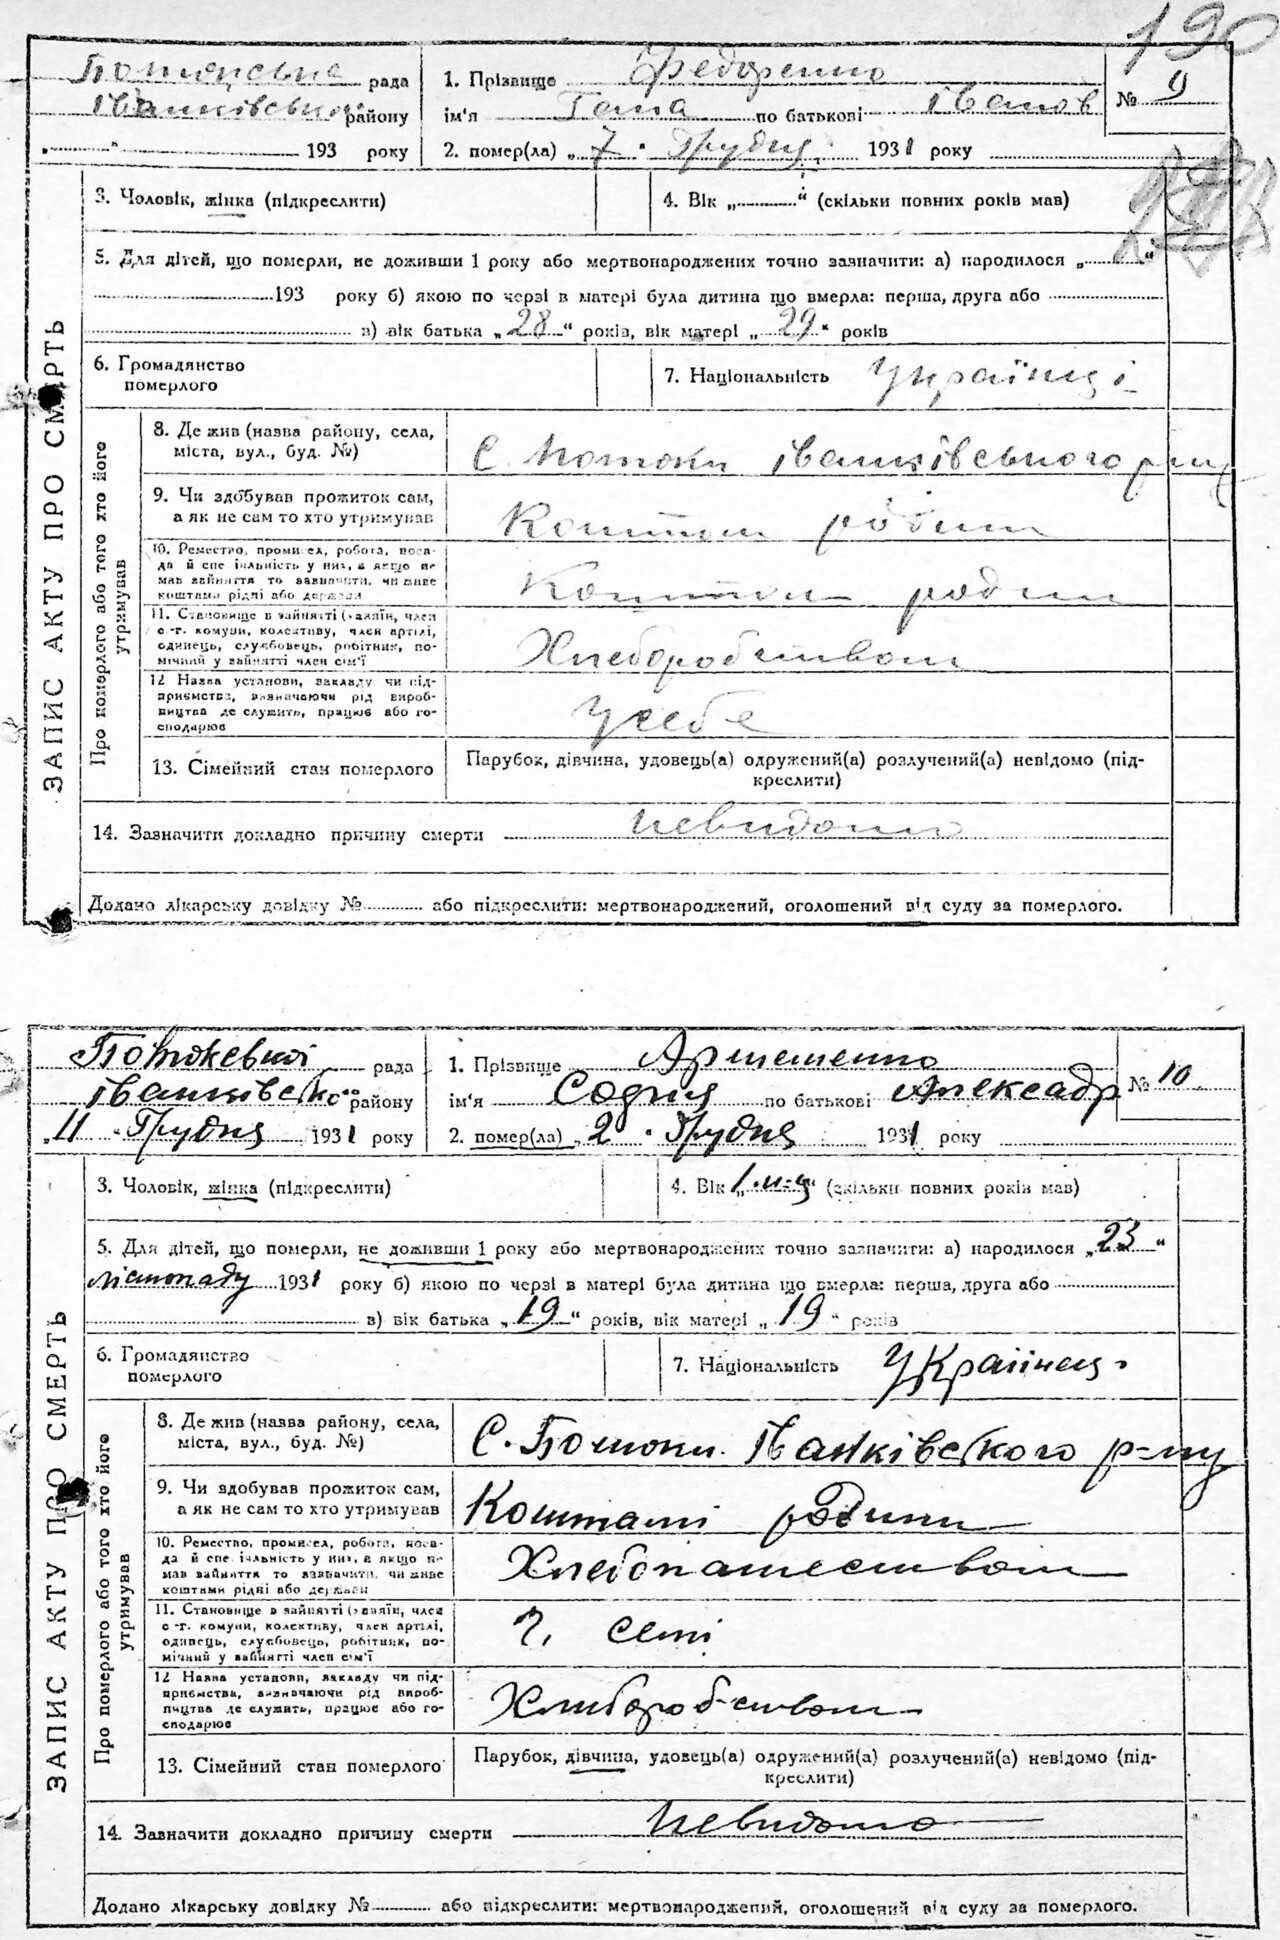 190
Потоцська рада 1. Прізвище Федоренко № 9
Іванківського району ім'я Гана по батькові Іванов
„ “ 193 року 2. помер(ла) „ 7 “ Грудня 1931 року
ЗАПИС АКТУ ПРО СМЕРТЬ
3. Чоловік, жінка (підкреслити) 4. Вік „ “ (скільки повних років мав)
5. Для дітей, що померли, не доживши 1 року або мертвонароджених точно зазначити: а) народилося „ “
193 року б) якою по черзі в матері була дитина що вмерла: перша, друга або
в) вік батька „ 28 “ років, вік матері „ 29 “ років
6. Громадянство померлого 7. Національність Українці
Про померлого або того хто його утримував
8. Де жив (назва району, села,
міста, вул., буд. №) С Потоки Іванківського р-ну
9. Чи здобував прожиток сам,
а як не сам то хто утримував Коштом родини
10. Ремество, промисел, робота, поса-
да й спеціяльність у них, а якщо не
мав зайняття то зазначити, чи живе
коштами рідні або держави Коштом родини
11. Становище в зайнятті (хазяїн, член
с.-г. комуни, колективу, член артілі,
одинець, службовець, робітник, по-
мічний у зайнятті член сім'ї Хлеборобством
12 Назва установи, закладу чи під-
приємства, визначаючи рід вироб-
ництва де служить, працює або го-
сподарює У себе
13. Сімейний стан померлого Парубок, дівчина, удовець(а) одружений(а) розлучений(а) невідомо (під-
креслити)
14. Зазначити докладно причину смерти невидомо
Додано лікарську довідку № або підкреслити: мертвонароджений, оголошений від суду за померлого.
рада 1. Прізвище Артеменко № 10
Іванківського району ім'я Софія по батькові Александр
„ 11 “ Грудня 1931 року 2. помер(ла) „ 2 “ Грудня 1931 року
ЗАПИС АКТУ ПРО СМЕРТЬ
3. Чоловік, жінка (підкреслити) 4. Вік „ 1 м-ц “ (скільки повних років мав)
5. Для дітей, що померли, не доживши 1 року або мертвонароджених точно зазначити: а) народилося „ 23 “
лістопаду 1931 року б) якою по черзі в матері була дитина що вмерла: перша, друга або
в) вік батька „ 19 “ років, вік матері „ 19 “ років
6. Громадянство померлого 7. Національність Українец
Про померлого або того хто його утримував
8. Де жив (назва району, села,
міста, вул., буд. №) С. Потоки Іванківського р-ну
9. Чи здобував прожиток сам,
а як не сам то хто утримував Коштамі родини
10. Ремество, промисел, робота, поса-
да й спеціяльність у них, а якщо не
мав зайняття то зазначити, чи живе
коштами рідні або держави Хлебопашеством
11. Становище в зайнятті (хазяїн, член
с.-г. комуни, колективу, член артілі,
одинець, службовець, робітник, по-
мічний у зайнятті член сім'ї Ч. семі
12 Назва установи, закладу чи під-
приємства, визначаючи рід вироб-
ництва де служить, працює або го-
сподарює Хлиборобством
13. Сімейний стан померлого Парубок, дівчина, удовець(а) одружений(а) розлучений(а) невідомо (під-
креслити)
14. Зазначити докладно причину смерти Невидомо
Додано лікарську довідку № або підкреслити: мертвонароджений, оголошений від суду за померлого.